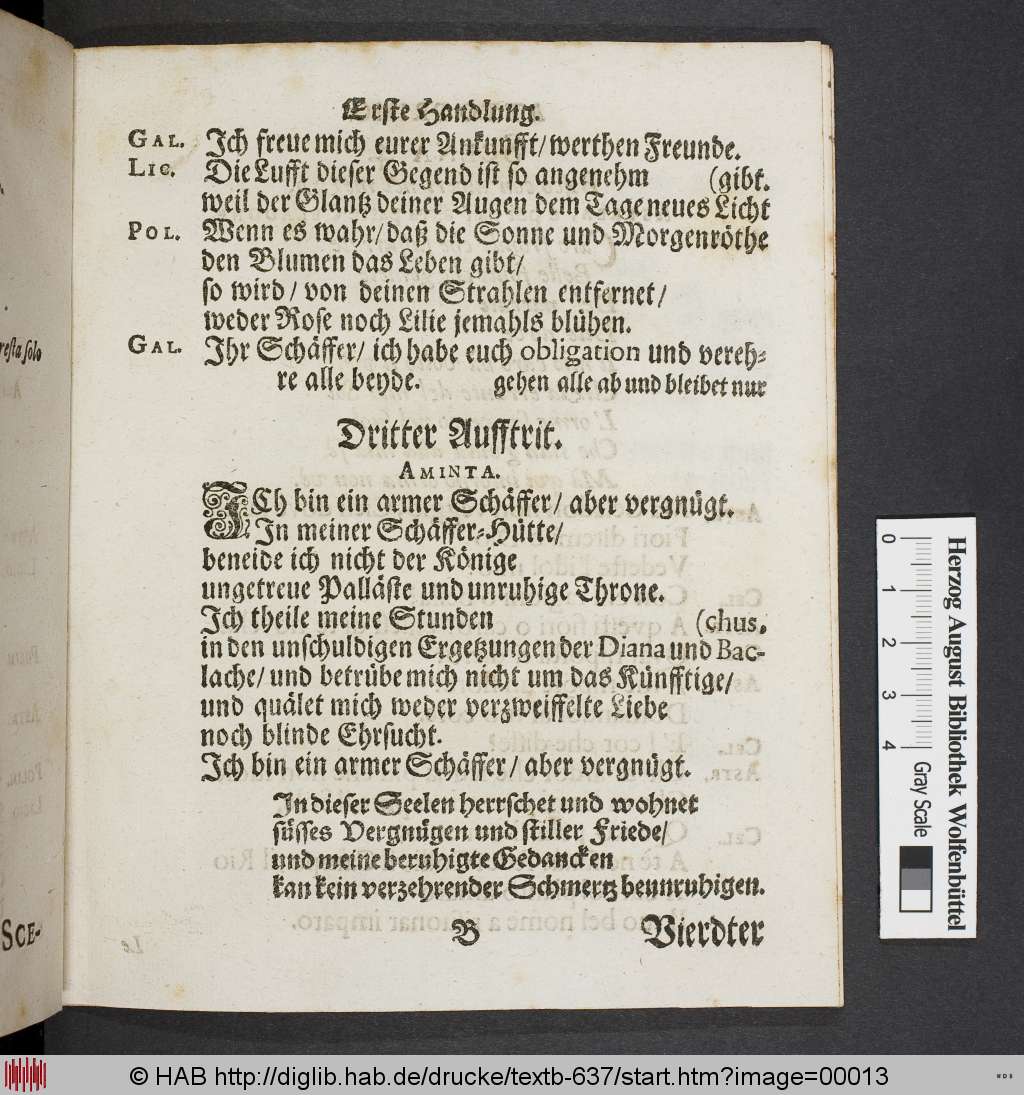 Erste Handlung.
GAL. Ich freue mich eurer Ankunfft/ werthen Freunde.
LIC. Die Lufft dieser Gegend ist so angenehm (gibt.
weil der Glantz deiner Augen dem Tage neues Licht
POL. Wenn es wahr/ daß die Sonne und Morgenröthe
den Blumen das Leben gibt/
so wird/ von deinen Strahlen entfernet/
weder Rose noch Lilie jemahls blühen.
GAL. Ihr Schäffer/ ich habe euch obligation und vereh-
re alle beyde. gehen alle ab und bleibet nur
Dritter Aufftrit.
AMINTA.
ICh bin ein armer Schäffer/ aber vergnügt.
In meiner Schäffer-Hütte/
beneide ich nicht der Könige
ungetreue Palläste und unruhige Throne.
Ich theile meine Stunden (chus.
in den unschuldigen Ergetzungen der Diana und Bac-
lache/ und betrübe mich nicht um das Künfftige/
und quälet mich weder verzweiffelte Liebe
noch blinde Ehrsucht.
Ich bin ein armer Schäffer/ aber vergnügt.
In dieser Seelen herrschet und wohnet
süsses Vergnügen und stiller Friede/
und meine beruhigte Gedancken
kan kein verzehrender Schmertz beunruhigen.
B Vierdter
resta solo
SCE-
0 1 2 3 4
Gray Scale
Herzog August Bibliothek Wolfenbüttel
© HAB http://diglib.hab.de/drucke/textb-637/start.htm?image=00013
WDB